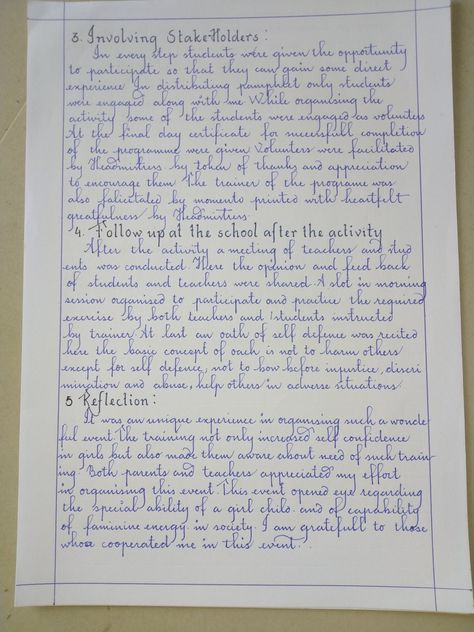 3. Involving StakeHolders:
In every step students were given the opportunity
to participate so that they can gain some direct
experience In distributing pamphlet only students
were engaged along with me While organising the
activity some of the students were engaged as volunteers
At the final day certificate for successfull completion
of the programme were given Volunters were facilitated
by Headmistress by token of thanks and appreciation
to encourage them The trainer of the programe was
also falicitated by momento printed with heartfelt
greatfulness by Headmistress
4. Follow up at the school after the activity
After the activity a meeting of teachers and stud
ents was conducted Here the opinion and feed back
of students and teachers were shared A slot in morning
session organised to participate and practice the required
exercise by both teachers and students instructed
by trainer At last an oath of self defence was recited
here the basic concept of oach is not to harm others
except for self defence, not to bow before injustice, discri
mination and abuse, help others in adverse situations
5 Reflection:
It was an unique experience in organising such a wonde
ful event. The training not only increased self confidence
in girls but also made them aware about need of such train
ing Both parents and teachers appreciated my effort
in organising this event. This event opened eye regarding
the special ability of a girl child and of capability
of faminine energy in society. I am gratefull to those
whose cooperated me in this event..